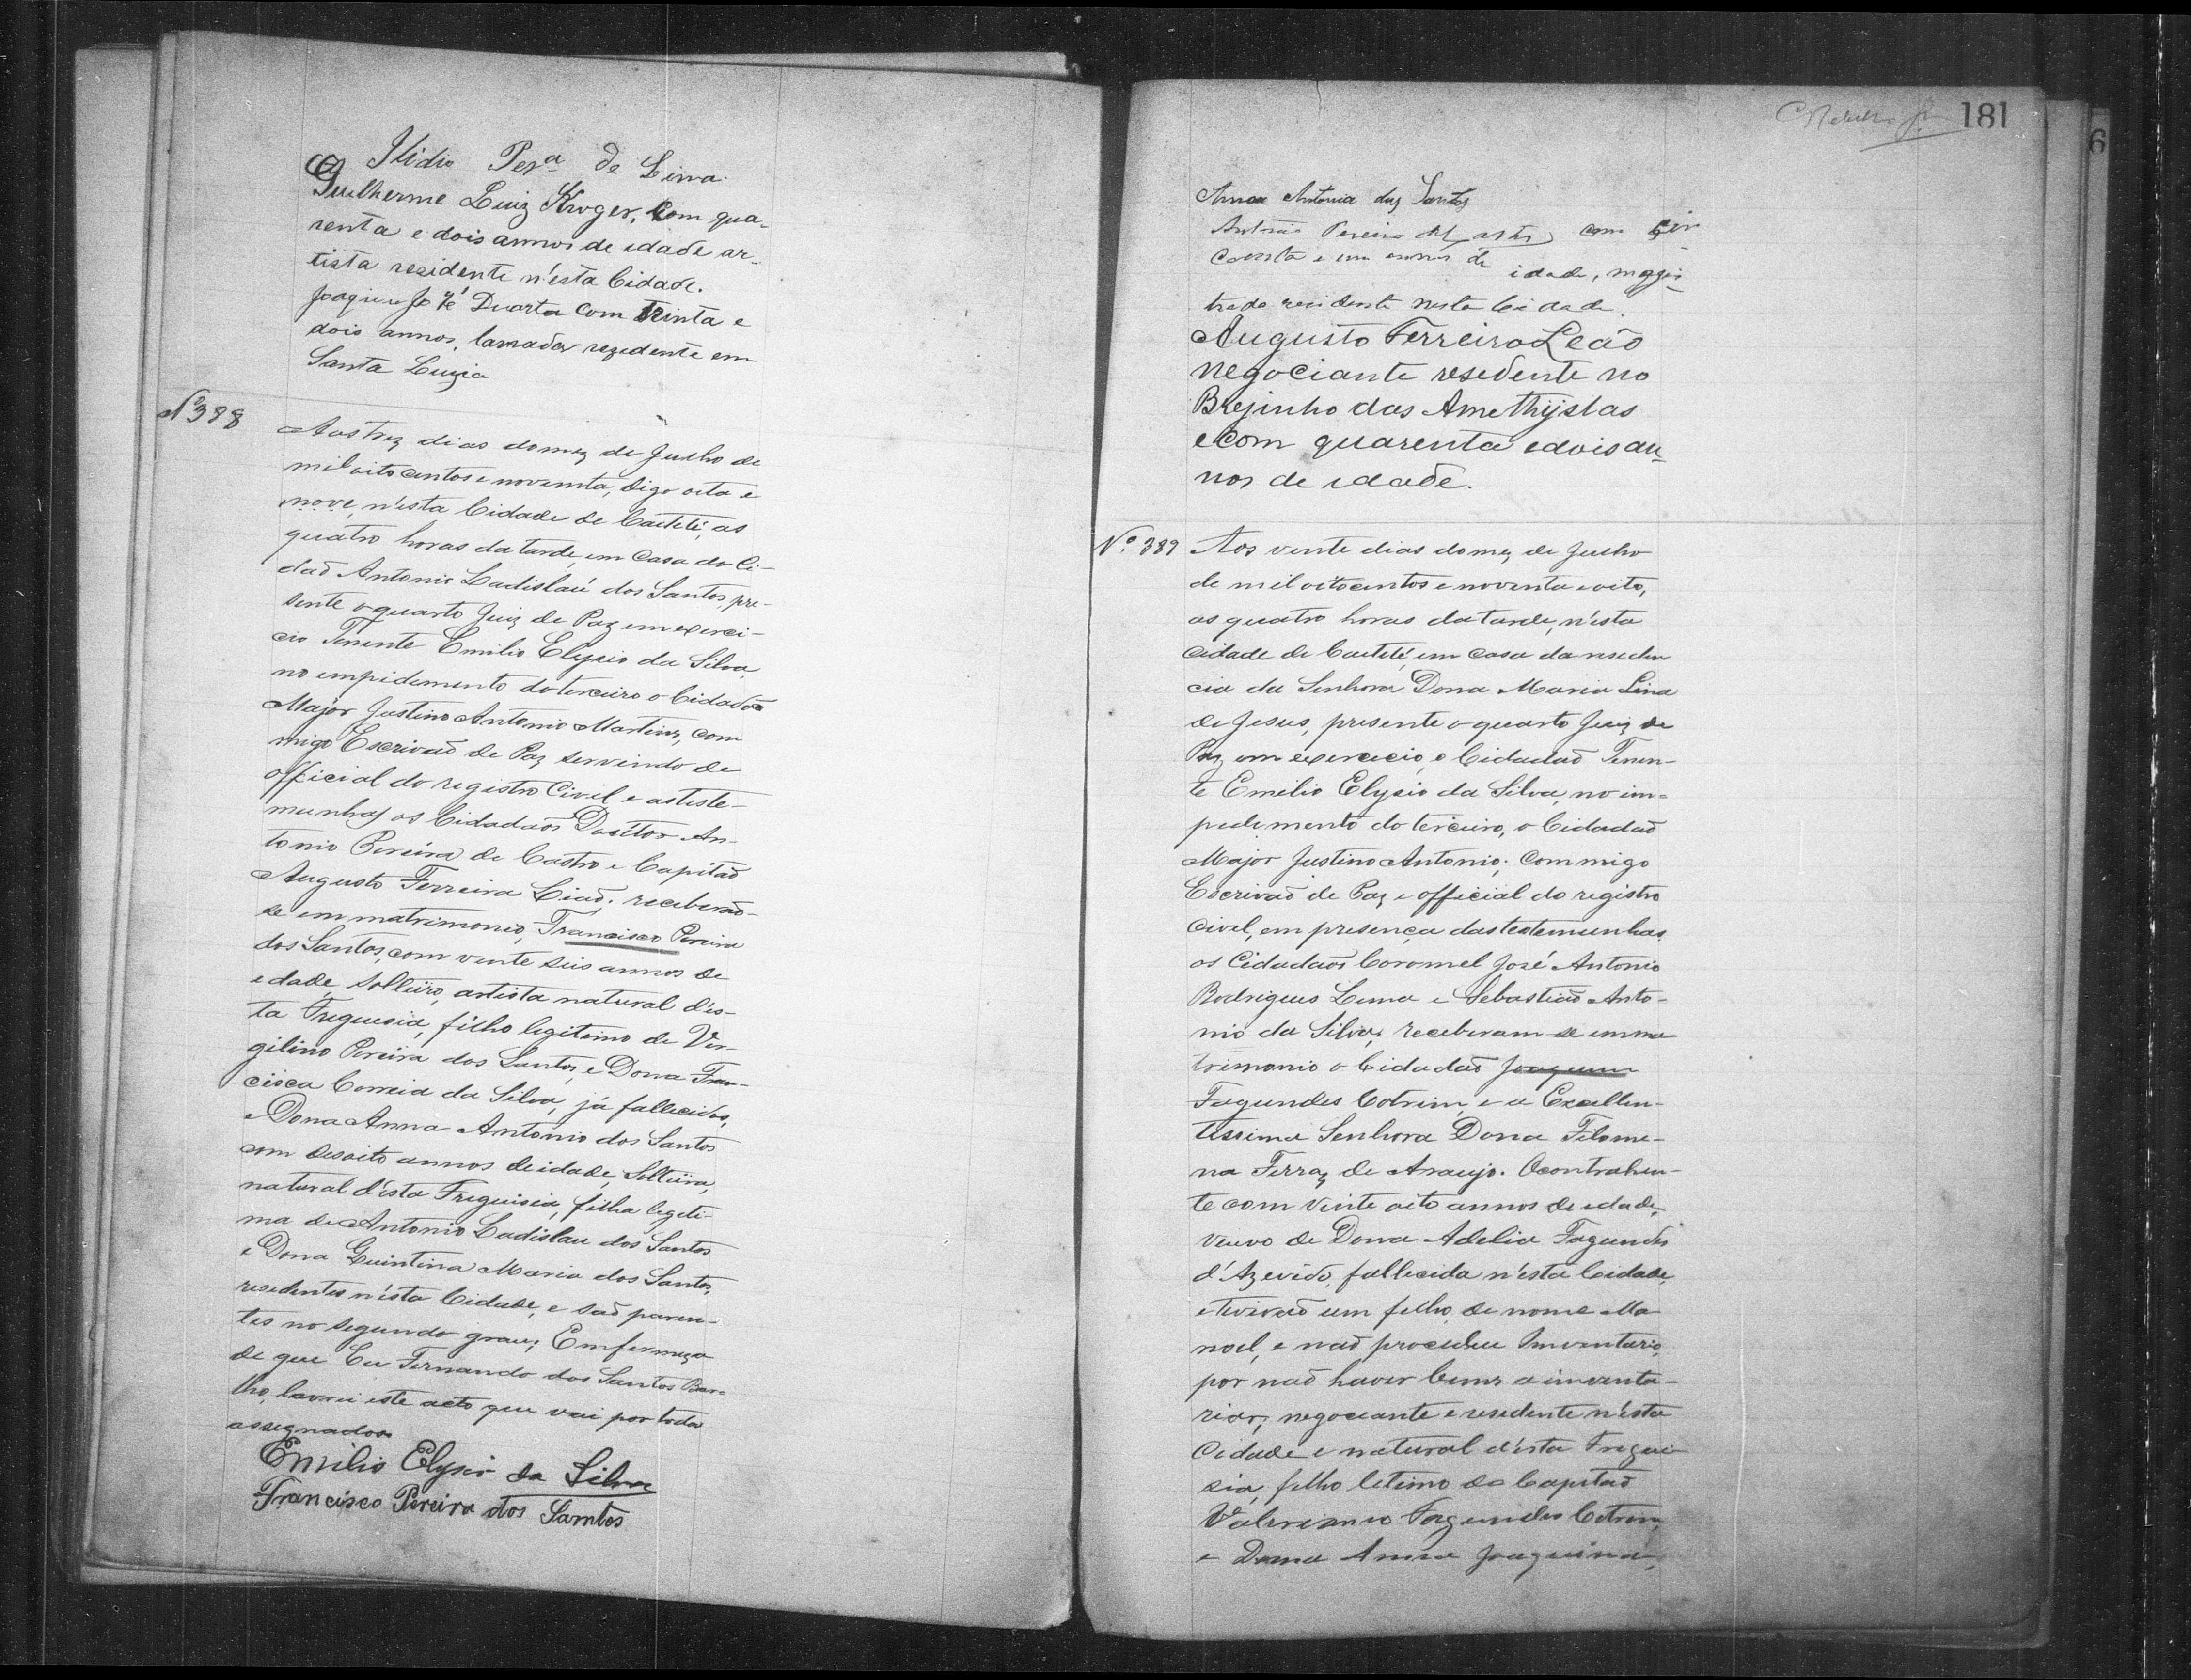 Ilidio Perª de Lima
Guilherme Luiz Kroger, Com qua-
renta e dois annos de idade ar-
tista rezidente n'esta Cidade.
Joaquim José Duarte Com trinta e
dois annos, lavrador rezedente em
Santa Luzia
Nº 388
Aos trez dias do mez de Julho de
mil oito centos e noventa, digo oita e
nove, n'esta Cidade de Caeteté, as
quatro horas da tarde, em Casa do Ci-
dad Antonio Ladislaú dos Santos, pre-
sente o quarto Juiz de Paz em exerci-
cio Tenente Emilio Elysio da Silva,
no empidemento do terceiro o Cidadão
Major Justino Antonio Martins, com
migo Escrivaõ de Paz servindo de
official do registro Civil e as teste-
munhas os Cidadaõs Douttor An-
tonio Pereira de Castro e Capitaõ
Augusto Ferreira Liaõ. receberaõ-
se em matrimonio, Francisco Pereira
dos Santos, com vente seis annos de
edade, solteiro, artista natural d'es-
ta Freguesia, filho legitimo de Ver-
gilino Pereira dos Santos, e Dona Fran-
cisca Correia da Silva, já fallecidos,
e Dona Anna Antonio dos Santos
com desoito annos de idade, Solteira,
natural d'esta Freguisia, filha legeti-
ma de Antonio Ladislau dos Santos
e Dona Quintina Maria dos Santos,
resedentes n'esta Cidade, e saõ paren-
tes no segundo grau; Em fermeza
de que Eu Fernando dos Santos
lho, lavrei este acto que vai por todos
assegnados
Emilio Elysio da Silva
Francisco Pereira dos Santos
181
Anna Antonia dos Santos
Antonio Pereira de Castro com cin
coenta e um annos de idade, magis-
trado residente nesta Cidade.
Augusto Ferreira Leaõ
negociante resedente no
Brejinho das Amethystas
e com quarenta e dois an-
nos de idade.
Nº 389
Aos vente dias do mez de Julho
de mil oitocentos e noventa e oito,
as quatro horas da tarde, n'esta
cidade de Caeteté, em casa da reseden
cia da Senhora Dona Maria Lina
de Jesus, presente o quarto Juiz de
Paz em exercecio, o Cidadaõ Tenen-
te Emilio Elysio da Silva, no im-
pedemento do terceiro, o Cidadaõ
Major Justino Antonio; Com migo
Escrivaõ de Paz e official do registro
Civil, em presença das testemunhas
os Cidadaõs Coronel José Antonio
Rodrigues Lima e Sebastiaõ Anto-
nio da Silva; receberam-se em ma
trimonio o Cidadaõ Joaquim
Fagundes Cotrim, e a Excellen-
tissima Senhora Dona Filome-
na Ferraz de Araujo. O contrahen-
te com vinte oito annos de edade,
veuvo de Dona Adelia Fagundes
d'Azevedo, fallecida n'esta Cidade,
e tiveraõ um filho, de nome Ma
noel, e naõ procedeu Inventario,
por naõ haver bens a inventa-
riar; negociante e resedente n'esta
Cidade e natural d'esta Fregue-
sia, filho letimo do Capitaõ
Valeriano Fagundes Cotrim,
e Dona Anna Joaquina,